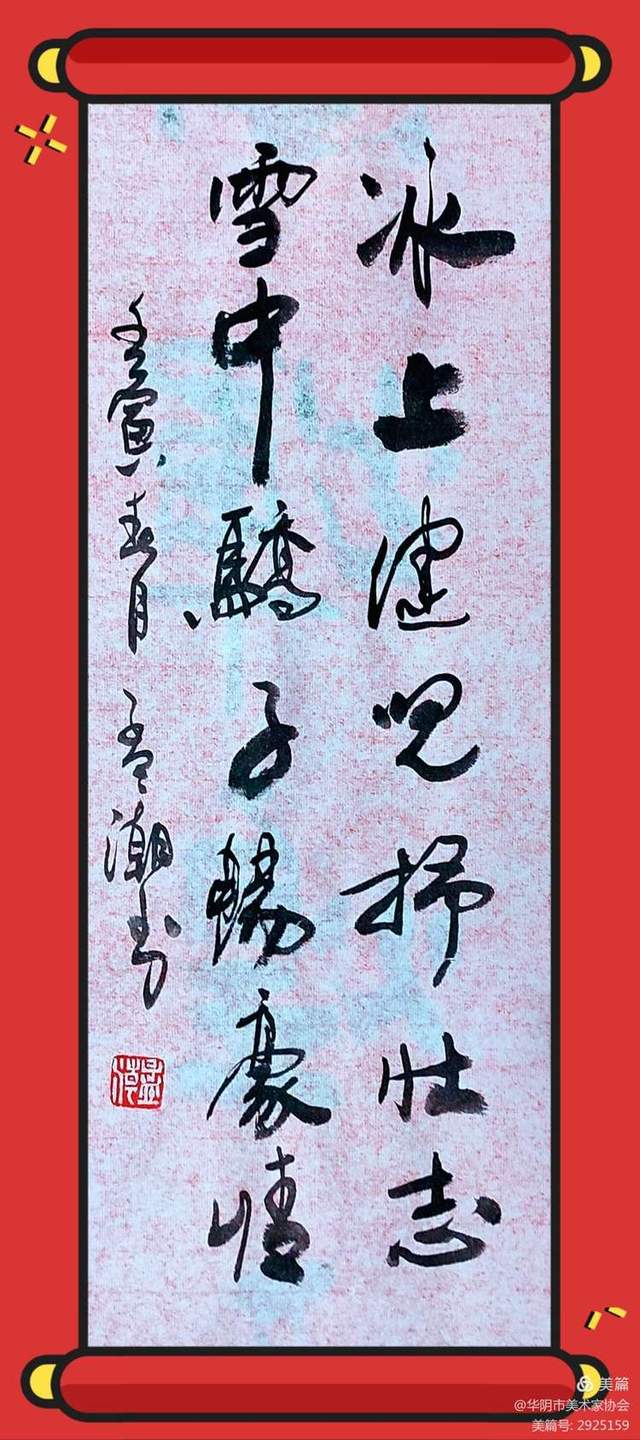 冰上健兒抒壮志
雪中驕子暢豪情
壬寅春月 孟潮书
美篇
@华阴市美术家协会
美篇号: 2925159